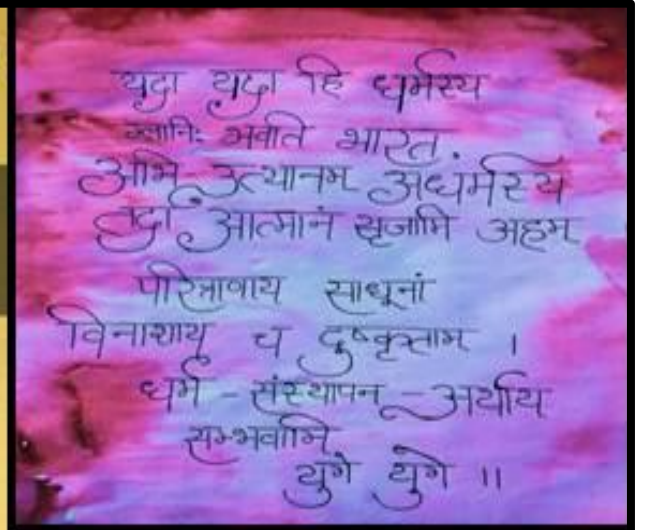 यदा यदा हि धर्मस्य
ग्लानिः भवति भारत
अभि उत्थानम् अधर्मस्य
तदा आत्मानं सृजामि अहम्
परित्राणाय साधूनां
विनाशाय च दुष्कृताम् ।
धर्म - संस्थापन - अर्थाय
सम्भवामि
युगे युगे ॥